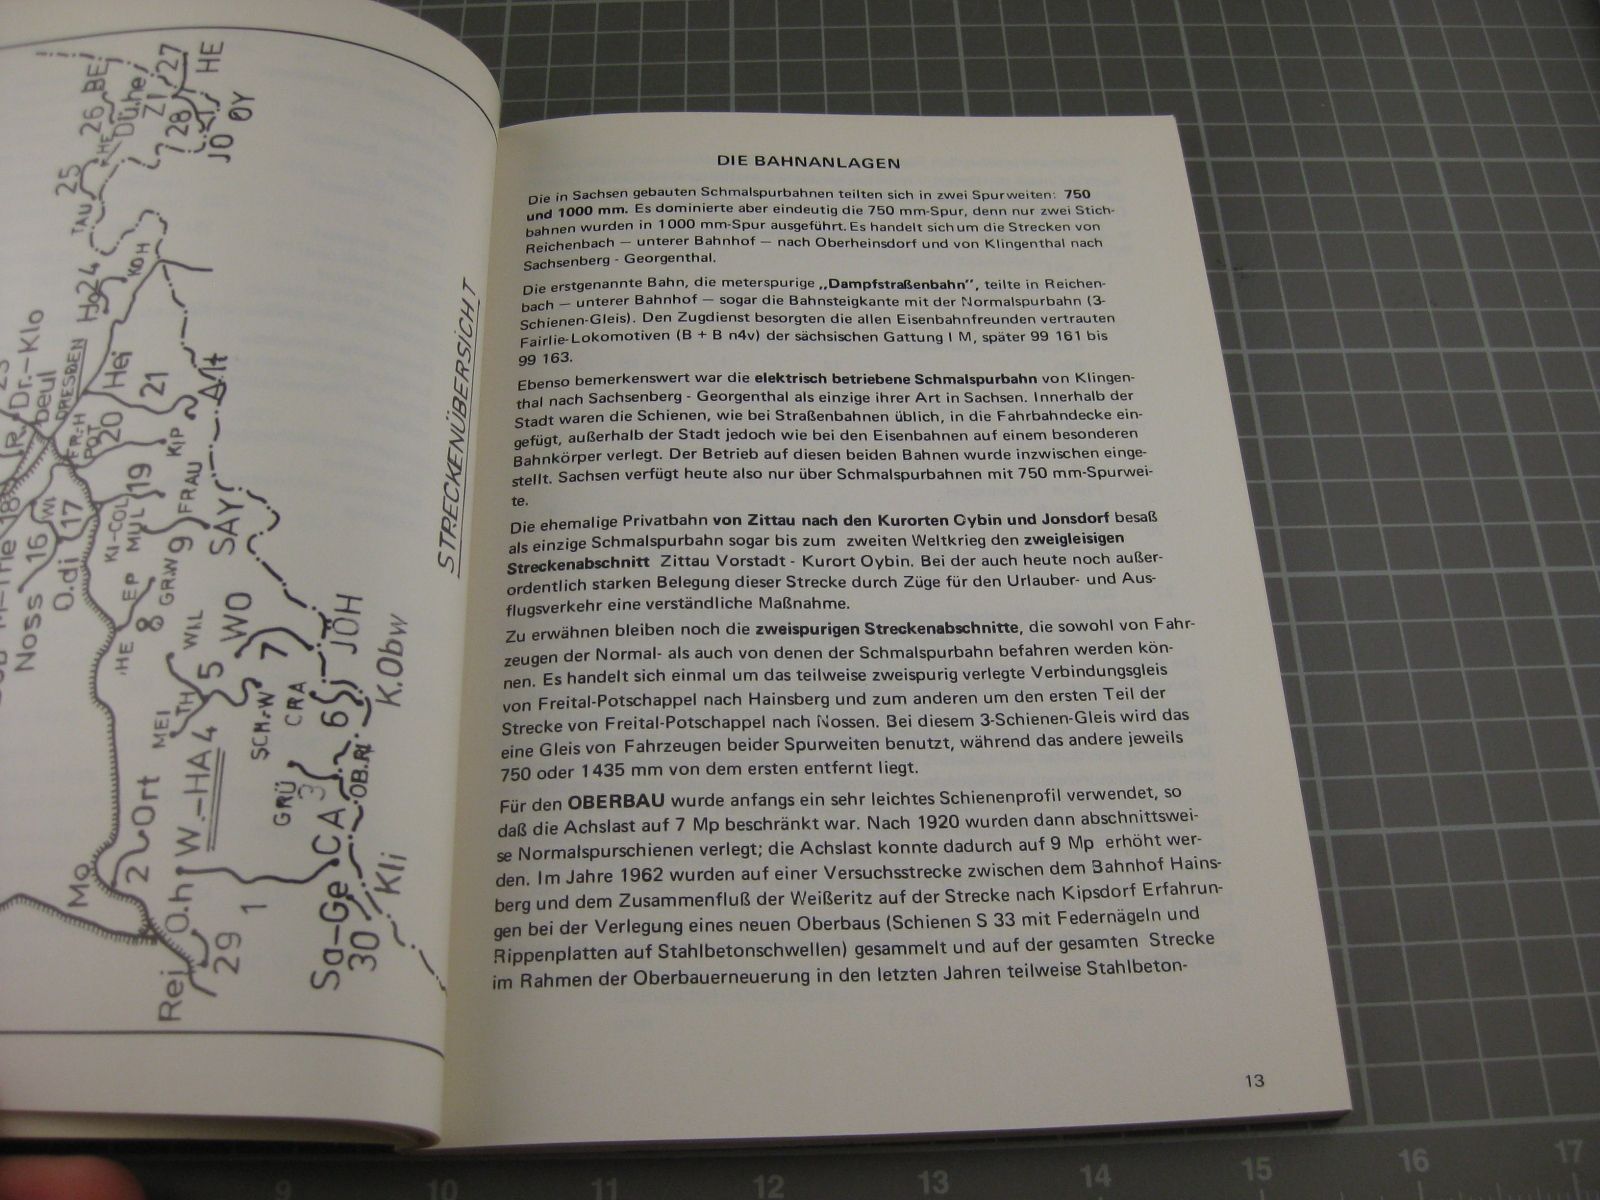 27
HE
BE
26
ØY
ZI
28
JO
Dü.he
HE
25
TAU
24
KOH
Hg
DRESDEN
Hei
21
Alt
R.
Dr.-Klo
beul
FR.-H
POT
20
KIP
18
19
FRAU
WI
17
KI-COL
MUL
9
SAY
Noss
16
O.di
EP
GR.W
HE
8
WIL
WO
JÖH
5
7
K.Obw
TH
MEI
SCH.-W
CRA
6
4
W.-HA
GRÜ
3
OB.RI
Ort
2
CA
Mo
O.h
1
Kli
Sa-Ge
30
29
Rei
STRECKENÜBERSICHT
DIE BAHNANLAGEN
Die in Sachsen gebauten Schmalspurbahnen teilten sich in zwei Spurweiten: 750
und 1000 mm. Es dominierte aber eindeutig die 750 mm-Spur, denn nur zwei Stich-
bahnen wurden in 1000 mm-Spur ausgeführt. Es handelt sich um die Strecken von
Reichenbach — unterer Bahnhof — nach Oberheinsdorf und von Klingenthal nach
Sachsenberg - Georgenthal.
Die erstgenannte Bahn, die meterspurige „Dampfstraßenbahn", teilte in Reichen-
bach — unterer Bahnhof — sogar die Bahnsteigkante mit der Normalspurbahn (3-
Schienen-Gleis). Den Zugdienst besorgten die allen Eisenbahnfreunden vertrauten
Fairlie-Lokomotiven (B + B n4v) der sächsischen Gattung I M, später 99 161 bis
99 163.
Ebenso bemerkenswert war die elektrisch betriebene Schmalspurbahn von Klingen-
thal nach Sachsenberg - Georgenthal als einzige ihrer Art in Sachsen. Innerhalb der
Stadt waren die Schienen, wie bei Straßenbahnen üblich, in die Fahrbahndecke ein-
gefügt, außerhalb der Stadt jedoch wie bei den Eisenbahnen auf einem besonderen
Bahnkörper verlegt. Der Betrieb auf diesen beiden Bahnen wurde inzwischen einge-
stellt. Sachsen verfügt heute also nur über Schmalspurbahnen mit 750 mm-Spurwei-
te.
Die ehemalige Privatbahn von Zittau nach den Kurorten Oybin und Jonsdorf besaß
als einzige Schmalspurbahn sogar bis zum zweiten Weltkrieg den zweigleisigen
Streckenabschnitt Zittau Vorstadt - Kurort Oybin. Bei der auch heute noch außer-
ordentlich starken Belegung dieser Strecke durch Züge für den Urlauber- und Aus-
flugsverkehr eine verständliche Maßnahme.
Zu erwähnen bleiben noch die zweispurigen Streckenabschnitte, die sowohl von Fahr-
zeugen der Normal- als auch von denen der Schmalspurbahn befahren werden kön-
nen. Es handelt sich einmal um das teilweise zweispurig verlegte Verbindungsgleis
von Freital-Potschappel nach Hainsberg und zum anderen um den ersten Teil der
Strecke von Freital-Potschappel nach Nossen. Bei diesem 3-Schienen-Gleis wird das
eine Gleis von Fahrzeugen beider Spurweiten benutzt, während das andere jeweils
750 oder 1435 mm von dem ersten entfernt liegt.
Für den OBERBAU wurde anfangs ein sehr leichtes Schienenprofil verwendet, so
daß die Achslast auf 7 Mp beschränkt war. Nach 1920 wurden dann abschnittswei-
se Normalspurschienen verlegt; die Achslast konnte dadurch auf 9 Mp erhöht wer-
den. Im Jahre 1962 wurden auf einer Versuchsstrecke zwischen dem Bahnhof Hains-
berg und dem Zusammenfluß der Weißeritz auf der Strecke nach Kipsdorf Erfahrun-
gen bei der Verlegung eines neuen Oberbaus (Schienen S 33 mit Federnägeln und
Rippenplatten auf Stahlbetonschwellen) gesammelt und auf der gesamten Strecke
im Rahmen der Oberbauerneuerung in den letzten Jahren teilweise Stahlbeton-
13
9
10
11
12
13
14
15
16
17